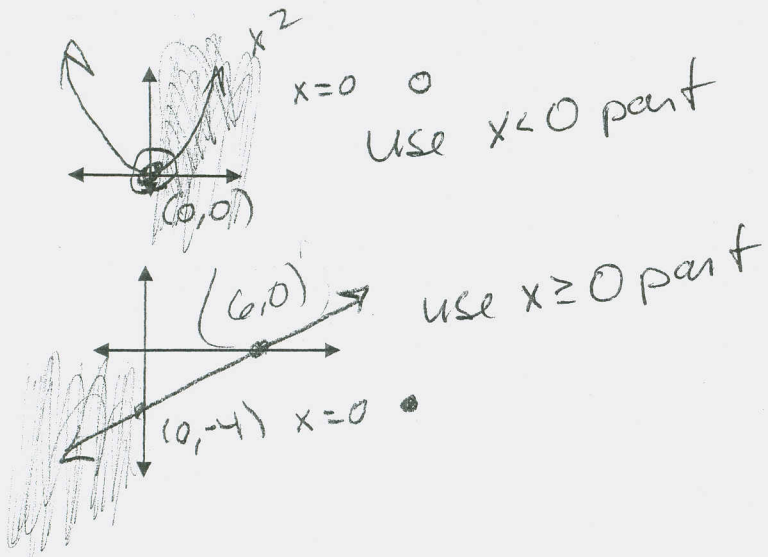 x²
x=0 o
use x<0 part
(0,0)
(6,0)
use x≥0 part
(0,-4) x=0 •